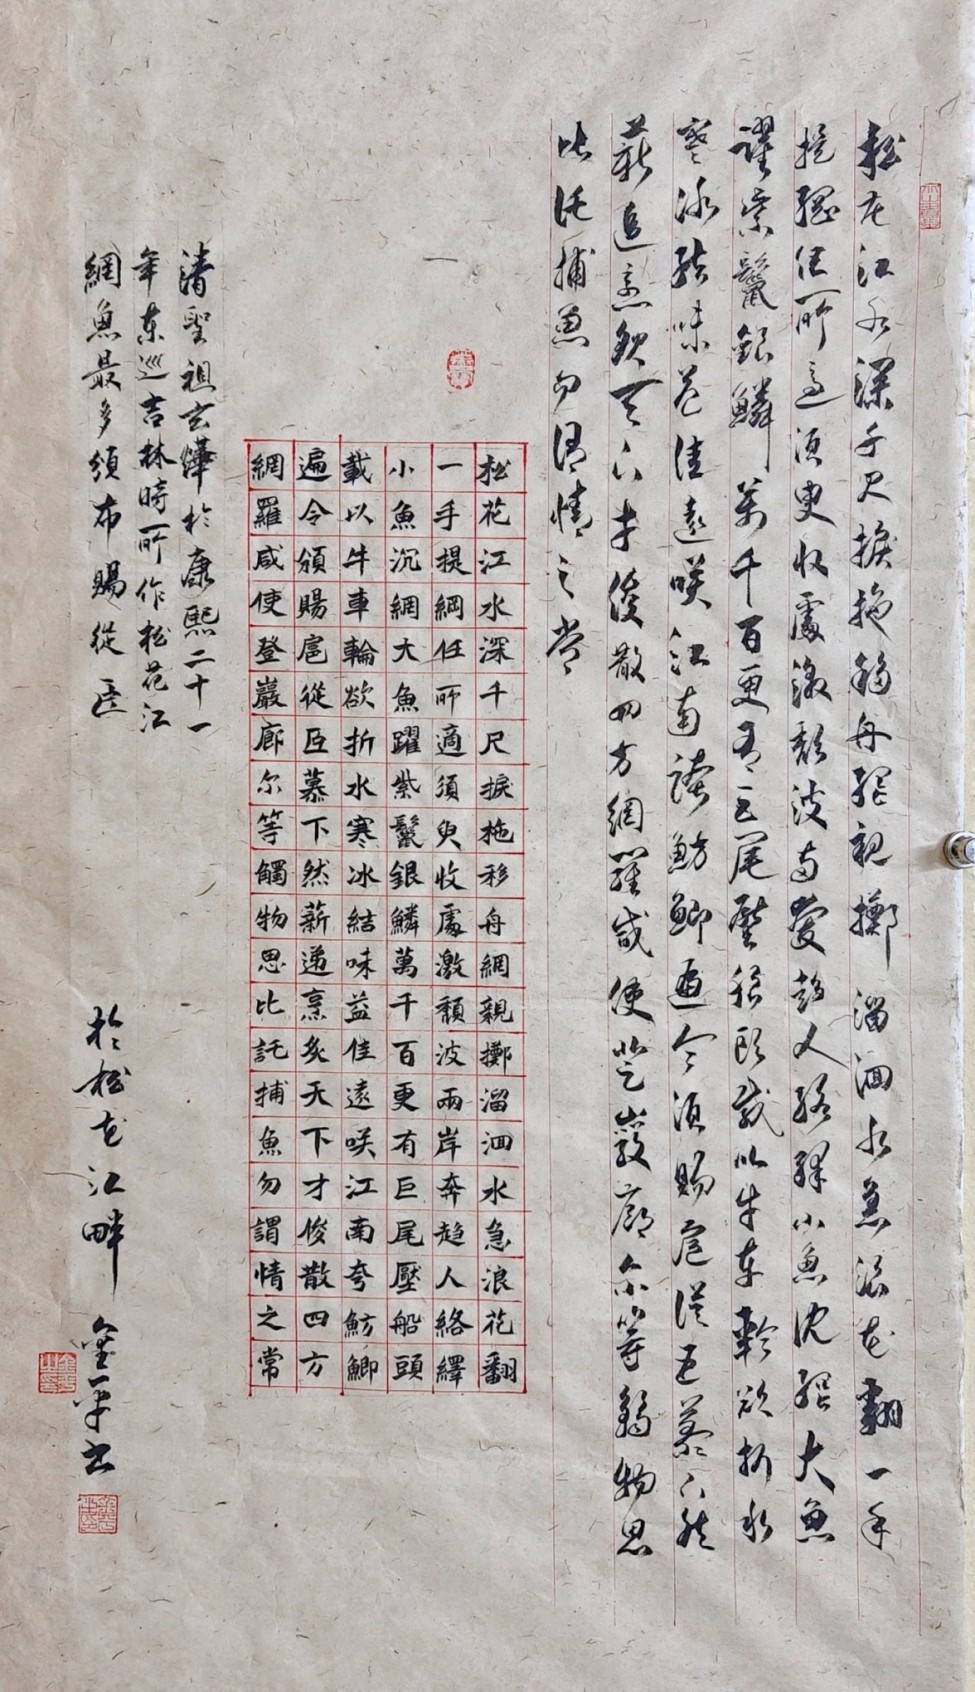 松花江水深千尺捩拖移舟網親擲溜洄水急浪花翻一手
提網任所適須臾收處激頹波兩岸奔趨人絡繹小魚沉網大魚
躍紫鬣銀鱗萬千百更有巨尾壓船頭載以牛車輪欲折水
寒冰結味益佳遠咲江南誇魴鯽遍令頒賜扈從臣慕下然
薪遞烹炙天下才俊散四方網羅咸使登巖廊尔等觸物思
比託捕魚勿謂情之常
松花江水深千尺捩拖移舟網親擲溜洄水急浪花翻
一手提綱任所適須臾收處激頹波兩岸奔趨人絡繹
小魚沉網大魚躍紫鬣銀鱗萬千百更有巨尾壓船頭
載以牛車輪欲折水寒冰結味益佳遠咲江南夸魴鯽
遍令頒賜扈從臣慕下然薪递烹炙天下才俊散四方
網羅咸使登巖廊尔等觸物思比託捕魚勿謂情之常
清聖祖玄燁於康熙二十一
年東巡吉林時所作松花江
網魚最多頒布賜從臣
於松花江畔 金平书